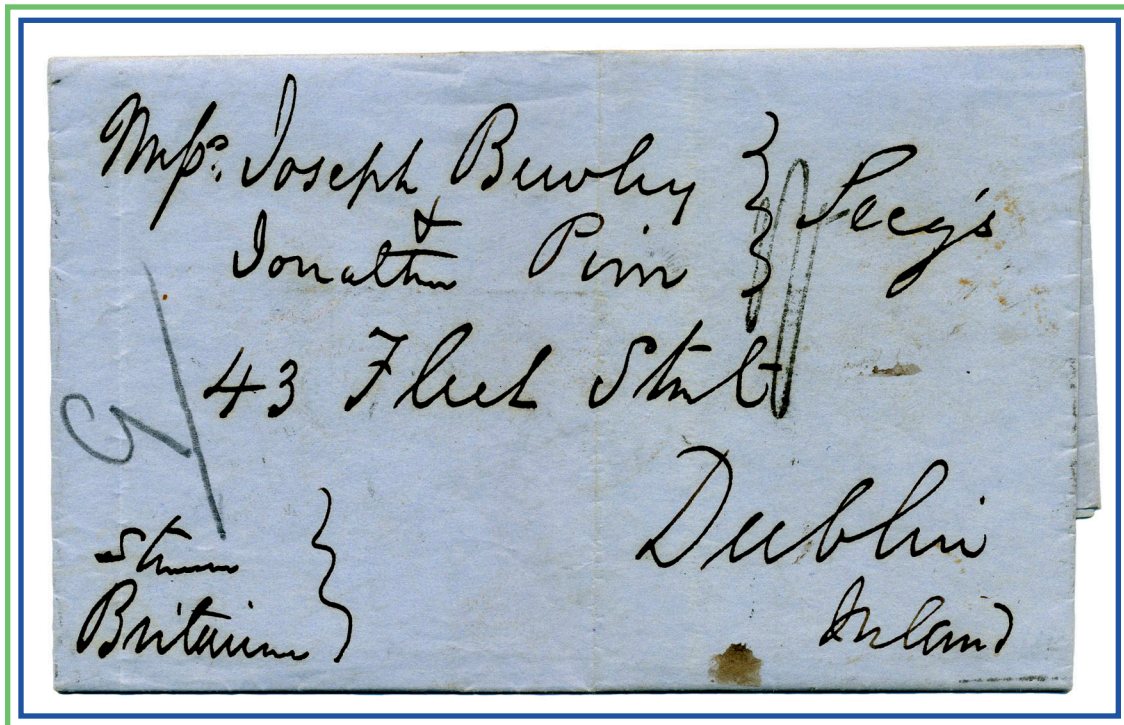 Messrs. Joseph Bewley
&
Jonathan Pim } Secy's
43 Fleet Street
Dublin
Ireland
Steamer
Britannia }